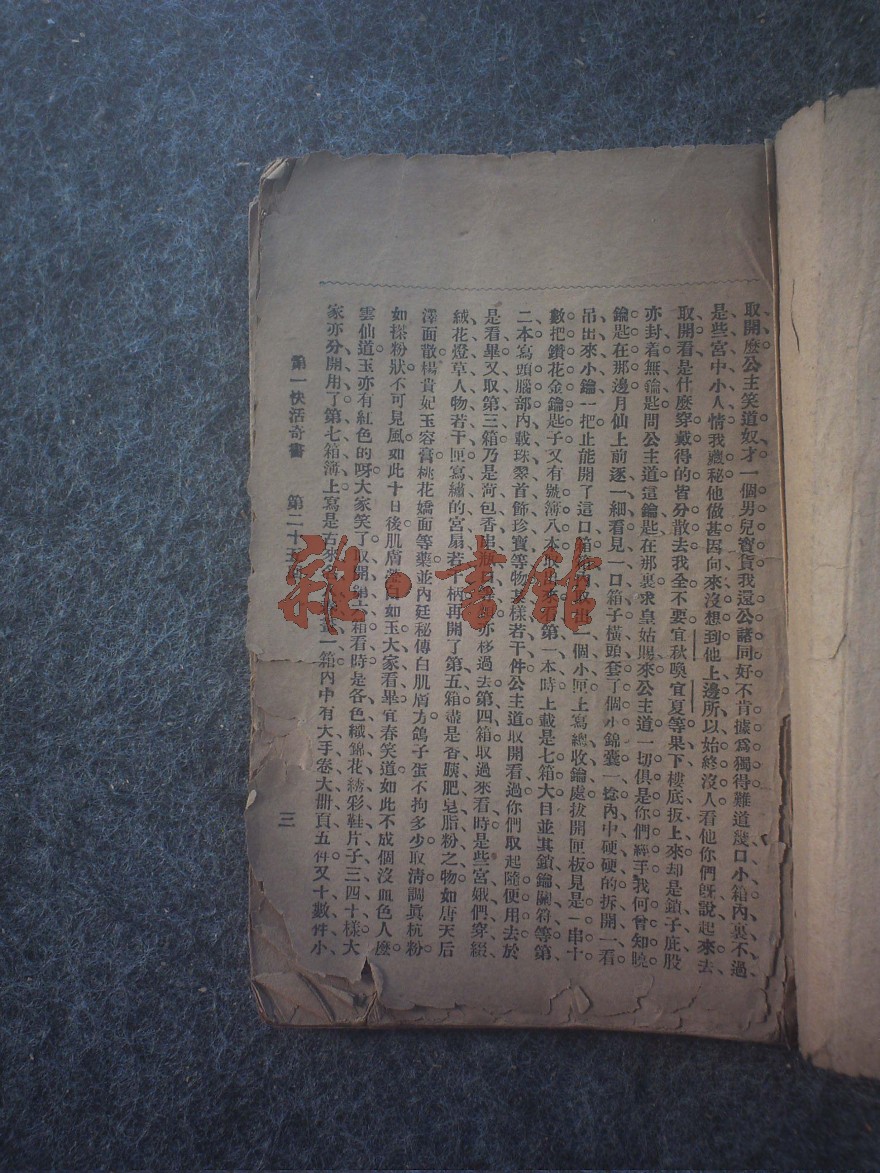 取開麽公主笑道奴才一個男兒寶貨我還公諸同好不肯據爲獨得難道幾口小箱內裏不過
是些宮中小人情我藏秘他做甚因向來沒想到他上邊所以始終沒人看他你們旣說起來去
取開看是什麽穿戴得的皆分散去我全不要宜秋喚宜夏等果下樓底扳上來却是鎖子庛股
亦封着無鑰匙問公主道這鑰匙在那裏求皇姑賜來公主道一切俱是你們經手我何曾知曉
鑰匙在那邊月仙上前逐一細看見一口箱子橫頭套了個小錦囊一捻內中硬硬的拆開一看
吊出來小鑰一把止能開了這口箱箱內取出一個小匣上寫總收鑰處拔開匣板見是一串十
數把鑽花金鑰匙子又有號簿八本取出來看第一本時上載是七箱大目並其鎖鑰關符等第
二本寫頭腦部內載珠翠首飾珍寶等物某樣若干件公主道取開看過你們取起隨便用去於
是看畢又取第三箱乃是荷包香串亦移過去第四箱取過來看時是些宮娥們穿綴
絨花燈草人物若干匣寫繡的宮扇若干柄再開了第五箱盡是香胰肥皂脂粉之物如唐天后
澤面散楊貴妃玉容膏桃花嬌面等藥並內廷秘傳白肌膚方鴿子蛋不拘多少取清調眞杭粉
如搽粉狀不可見風如此十日後肌膚瑩白如玉大家看畢宜春笑道如此不成個沒血色人麽
雲仙道玉亦有紅色的呀大家笑了取開第六箱看時是各色織錦花綉彩鞋片子三四十樣大
家亦分開用了第七箱簿上寫是古來一箱內中有大手卷大册頁五件又十數件小
第一快活奇書　第二十五　三
雜·書館